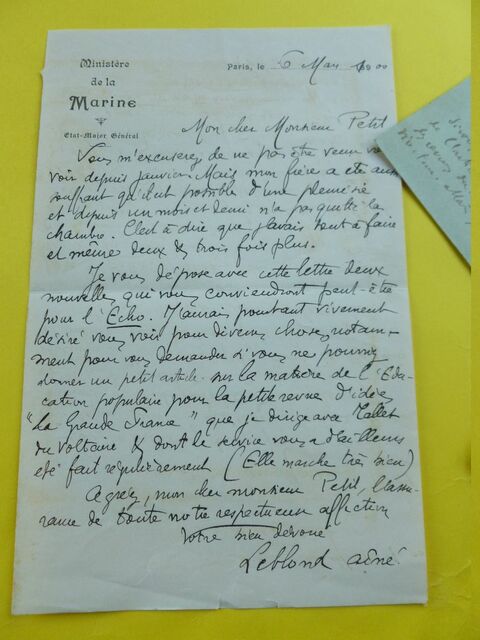 Ministère
de la
Marine
Etat-Major Général
Paris, le 6 Mars 1900
Mon cher Monsieur Petit
Vous m'excuserez de ne pas être venu vous
voir depuis janvier. Mais mon frère a été aussi
souffrant qu'il est possible d'une pleurésie
et depuis un mois et demi n'a pas quitté la
chambre. C'est à dire que j'avais tout à faire
et même deux & trois fois plus.
Je vous dépose avec cette lettre deux
nouvelles qui vous conviendront peut-être
pour l'Echo. J'aurais pourtant vivement
désiré vous voir pour diverses choses, notam-
ment pour vous demander si vous ne pourriez
donner un petit article sur la matière de l'Edu-
cation populaire pour la petite revue d'idées
"La Grande France" que je dirige avec Tallet
du Voltaire & dont le service vous a d'ailleurs
été fait régulièrement (Elle marche très bien)
Agréez, mon cher monsieur Petit, l'assu-
rance de toute notre respectueuse affection
Votre bien dévoué
Leblond aîné